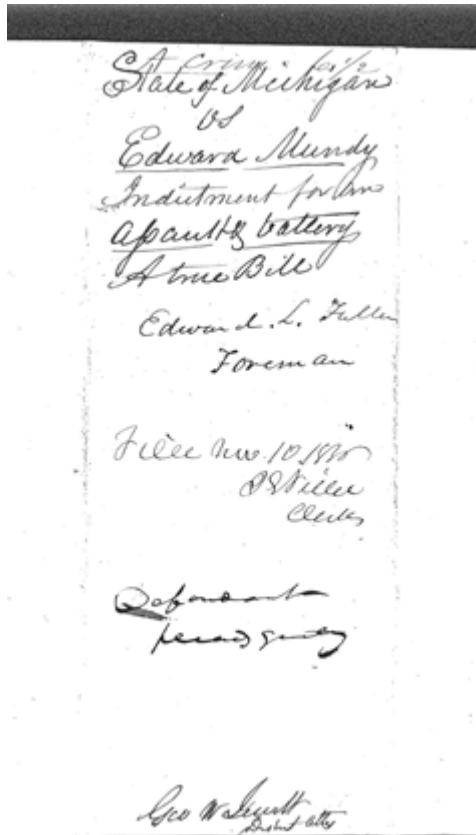 State of Michigan
vs
Edward Mundy
Indictment for an
assault & battery
A true Bill
Edward. L. Fuller
Foreman
Filed Nov. 10
Clerk
Defendant
pleads guilty
Geo W
District Atty